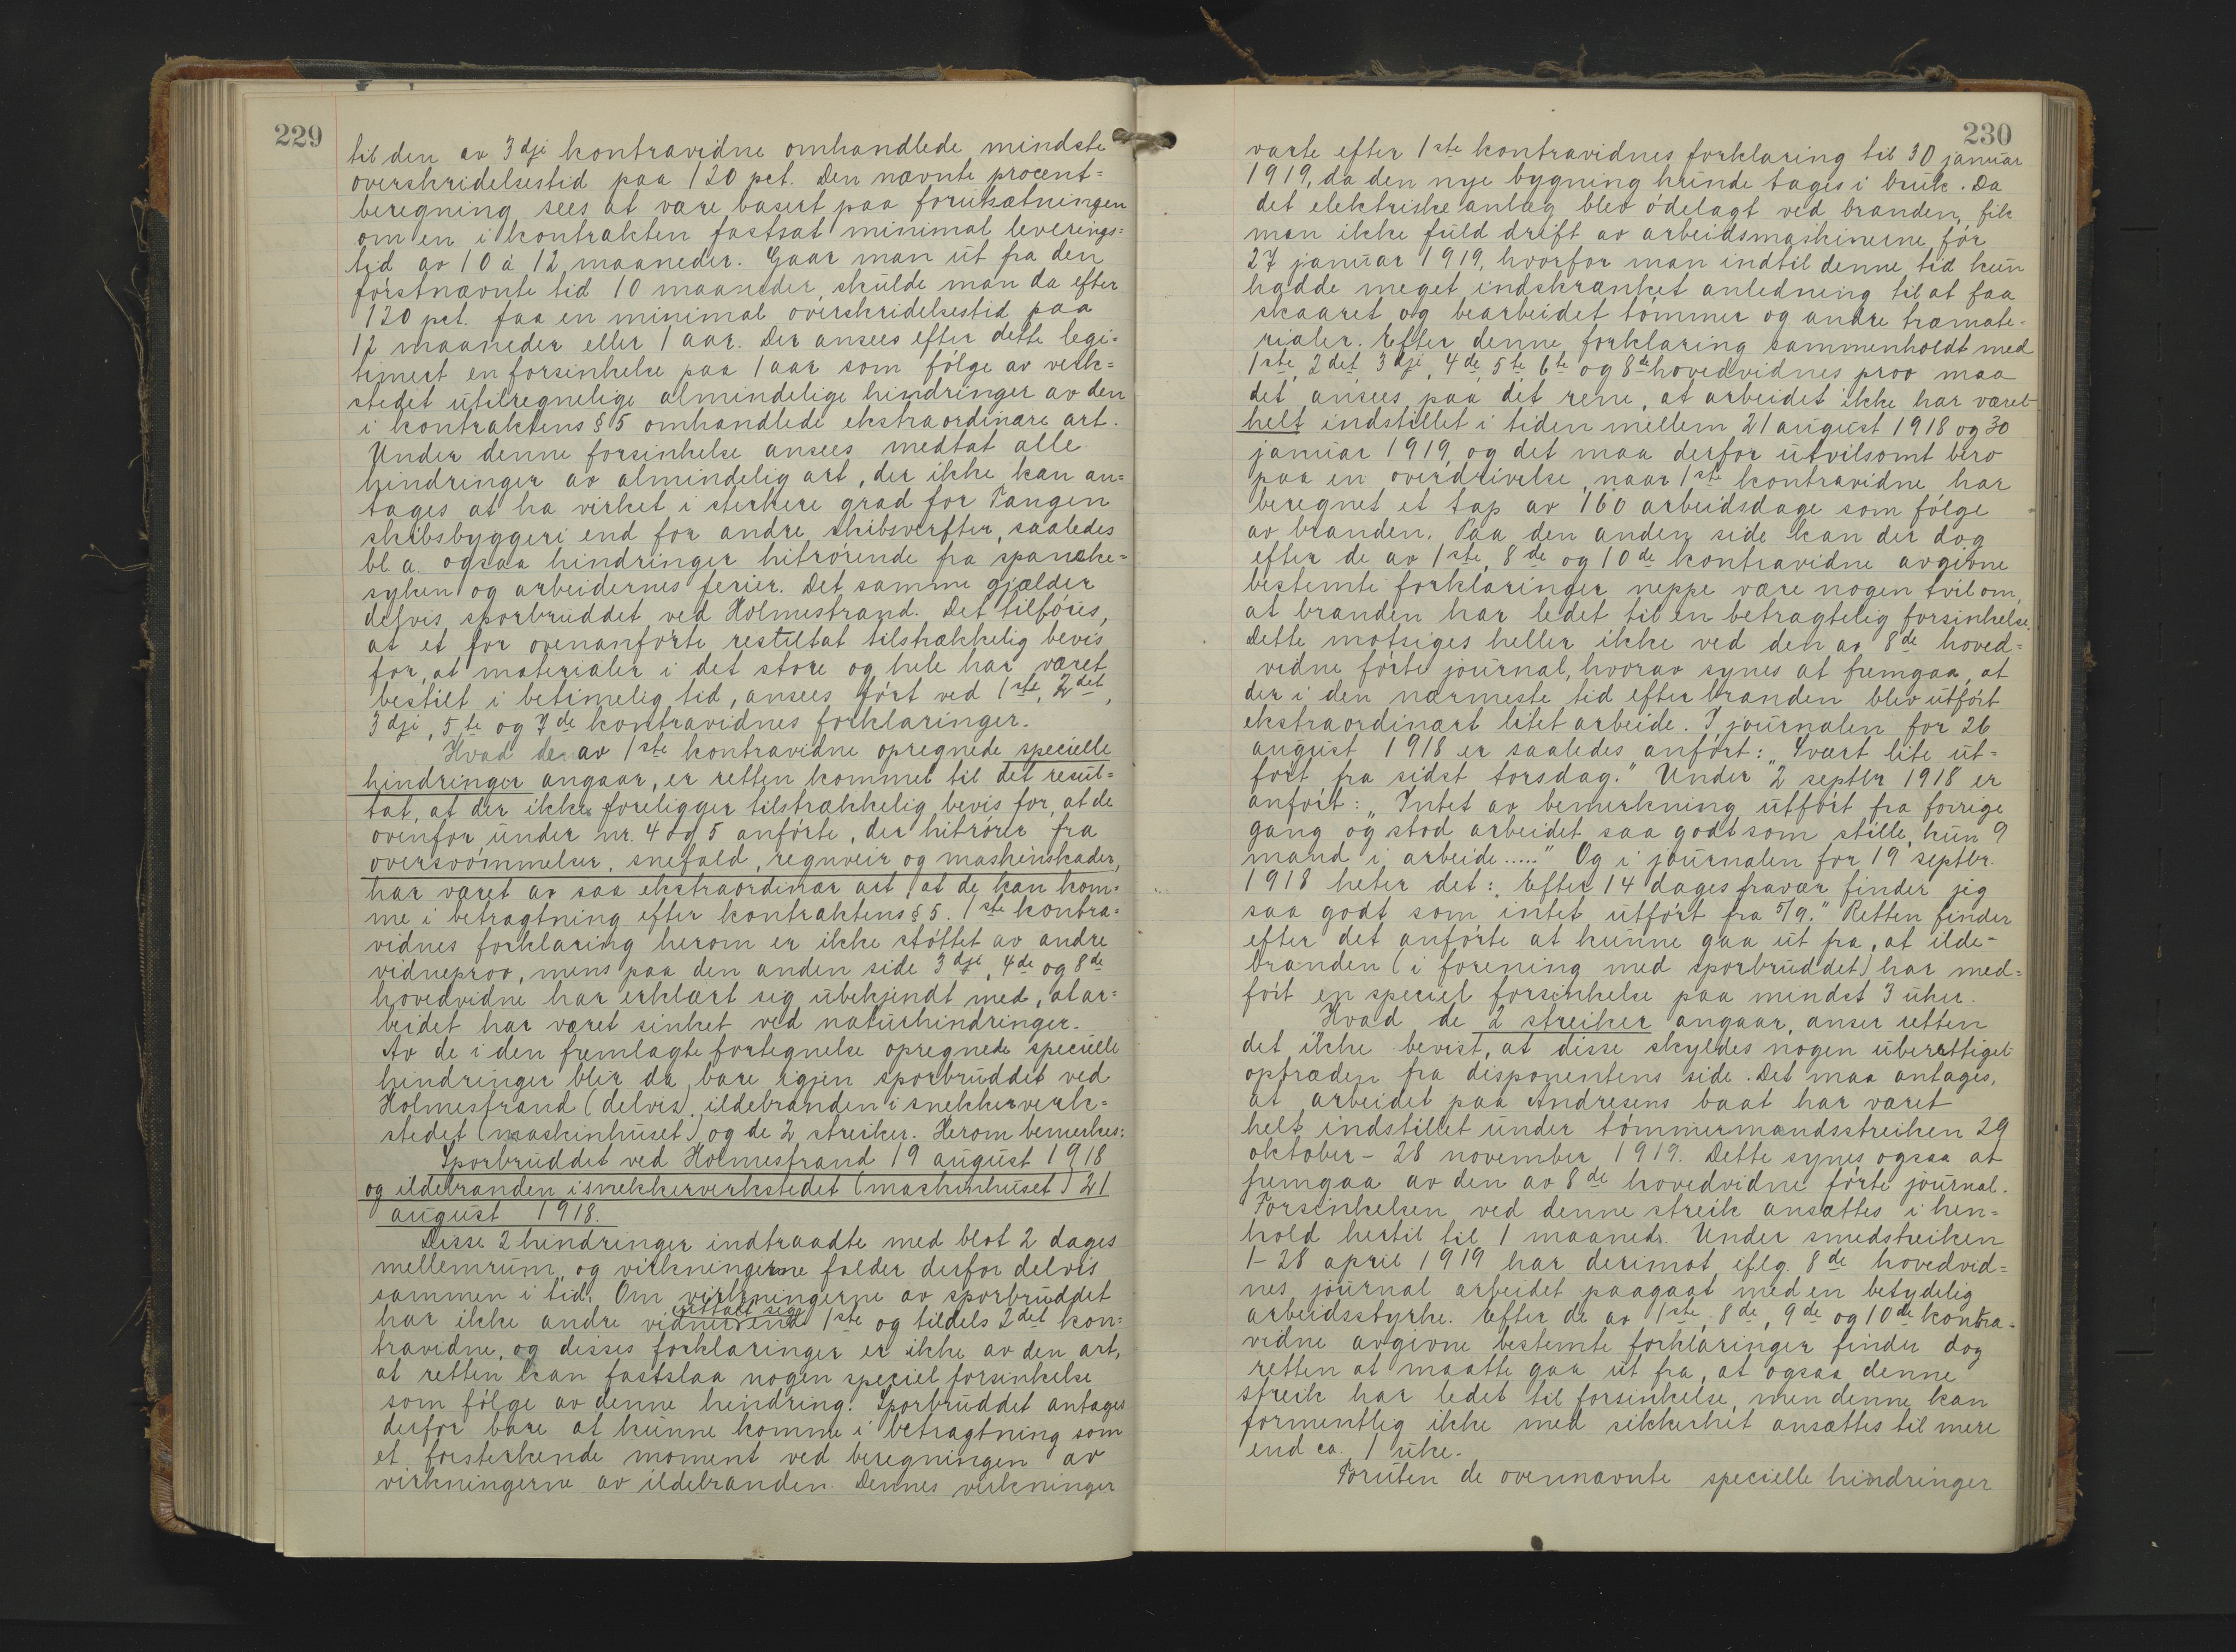 229
til den av 3dji kontravidne omhandlede mindste
overskridelsestid paa 120 pct. Den nævnte procent=
beregning sees at være basert paa forutsætningen
om en i kontrakten fastsat minimal leverings=
tid av 10 à 12 maaneder. Gaar man ut fra den
førstnævnte tid 10 maaneder, skulde man da efter
120 pct. faa en minimal overskridelsestid paa
12 maaneder eller 1 aar. Der ansees efter dette legi=
timert en forsinkelse paa 1 aar som følge av verk=
stedet utilregnelige almindelige hindringer av den
i kontraktens § 5 omhandlede ekstraordinære art.
Under denne forsinkelse ansees medtat alle
hindringer av almindelig art, der ikke kan an=
tages at ha virket i sterkere grad for Tangen
skibsbyggeri end for andre skibsverfter, saaledes
bl. a. ogsaa hindringer hitrørende fra spanske=
syken og arbeidernes ferier. Det samme gjælder
delvis sporbruddet ved Holmestrand. Det tilføies,
at et for ovenanførte resultat tilstrækkelig bevis
for, at materialer i det store og hele har været
bestilt i betimelig tid, ansees ført ved 1ste, 2det,
3dji, 5te og 7de kontravidnes forklaringer.
Hvad de av 1ste kontravidne opregnede specielle
hindringer angaar, er retten kommet til det resul=
tat, at der ikke foreligger tilstrækkelig bevis for, at de
ovenfor under nr. 4 og 5 anførte, der hitrører fra
oversvømmelser, snefald, regnveir og maskinskader,
har været av saa ekstraordinær art at de kan kom=
me i betragtning efter kontraktens § 5. 1ste kontra=
vidnes forklaring herom er ikke støttet av andre
vidneprov, mens paa den anden side 3dje, 4de og 8de
hovedvidne har erklært sig ubekjendt med, at ar=
beidet har været sinket ved naturhindringer.
Av de i den fremlagte fortegnelse opregnede specielle
hindringer blir da bare igjen sporbruddet ved
Holmestrand (delvis), ildebranden i snekkerverk=
stedet (maskinhuset) og de 2 streiker. Herom bemerkes:
Sporbruddet ved Holmestrand 19 august 1918
og ildebranden i snekkerverkstedet (maskinhuset) 21
august 1918.
Disse 2 hindringer indtraadte med blot 2 dages
mellemrum, og virkningerne falder derfor delvis
sammen i tid. Om virkningerne av sporbruddet
uttalt sig
har ikke andre vidner end 1ste og tildels 2det kon=
travidne, og disses forklaringer er ikke av den art,
at retten kan fastslaa nogen speciel forsinkelse
som følge av denne hindring. Sporbruddet antages
derfor bare at kunne komme i betragtning som
et forsterkende moment ved beregningen av
virkningerne av ildebranden. Dennes virkninger
230
varte efter 1ste kontravidnes forklaring til 30 januar
1919, da den nye bygning kunde tages i bruk. Da
det elektriske anlæg blev ødelagt ved branden, fik
man ikke fuld drift av arbeidsmaskinerne før
27 januar 1919, hvorfor man indtil denne tid kun
hadde meget indskrænket anledning til at faa
skaaret og bearbeidet tømmer og andre træmate=
rialer. Efter denne forklaring sammenholdt med
1ste, 2det, 3dji, 4de, 5te 6te og 8de hovedvidnes prov maa
det ansees paa det rene, at arbeidet ikke har været
helt indstillet i tiden mellem 21 august 1918 og 30
januar 1919, og det maa derfor utvilsomt bero
paa en overdrivelse, naar 1ste kontravidne har
beregnet et tap av 160 arbeidsdage som følge
av branden. Paa den anden side kan der dog
efter de av 1ste, 8de og 10de kontravidne avgivne
bestemte forklaringer neppe være nogen tvil om,
at branden har ledet til en betragtelig forsinkelse.
Dette motsiges heller ikke ved den av 8de hoved=
vidne førte journal, hvorav synes at fremgaa, at
der i den nærmeste tid efter branden blev utført
ekstraordinært litet arbeide. I journalen for 26
august 1918 er saaledes anført: "Svært lite ut=
ført fra sidst torsdag." Under 2 septbr 1918 er
anført: "Intet av bemerkning utført fra forrige
gang og stod arbeidet saa godt som stille, kun 9
mand i arbeide....." Og i journalen for 19 septbr.
1918 heter det: "Efter 14 dages fravær finder jeg
saa godt som intet utført fra 5/9." Retten finder
efter det anførte at kunne gaa ut fra, at ilde=
branden (i forening med sporbruddet) har med=
ført en speciel forsinkelse paa mindst 3 uker.
Hvad de 2 streiker angaar, anser retten
det ikke bevist, at disse skyldes nogen uberettiget
optræden fra disponentens side. Det maa antages,
at arbeidet paa Andresens baat har været
helt indstillet under tømmermandsstreiken 29
oktober - 28 november 1919. Dette synes ogsaa at
fremgaa av den av 8de hovedvidne førte journal.
Forsinkelsen ved denne streik ansættes i hen=
hold hertil til 1 maaned. Under smedstreiken
1-28 april 1919 har derimot iflg. 8de hovedvid=
nes journal arbeidet paagaat med en betydelig
arbeidsstyrke. Efter de av 1ste, 8de, 9de og 10de kontra=
vidne avgivne bestemte forklaringer finder dog
retten at maatte gaa ut fra, at ogsaa denne
streik har ledet til forsinkelse, men denne kan
formentlig ikke med sikkerhet ansættes til mere
end ca. 1 uke.
Foruten de ovennævnte specielle hindringer